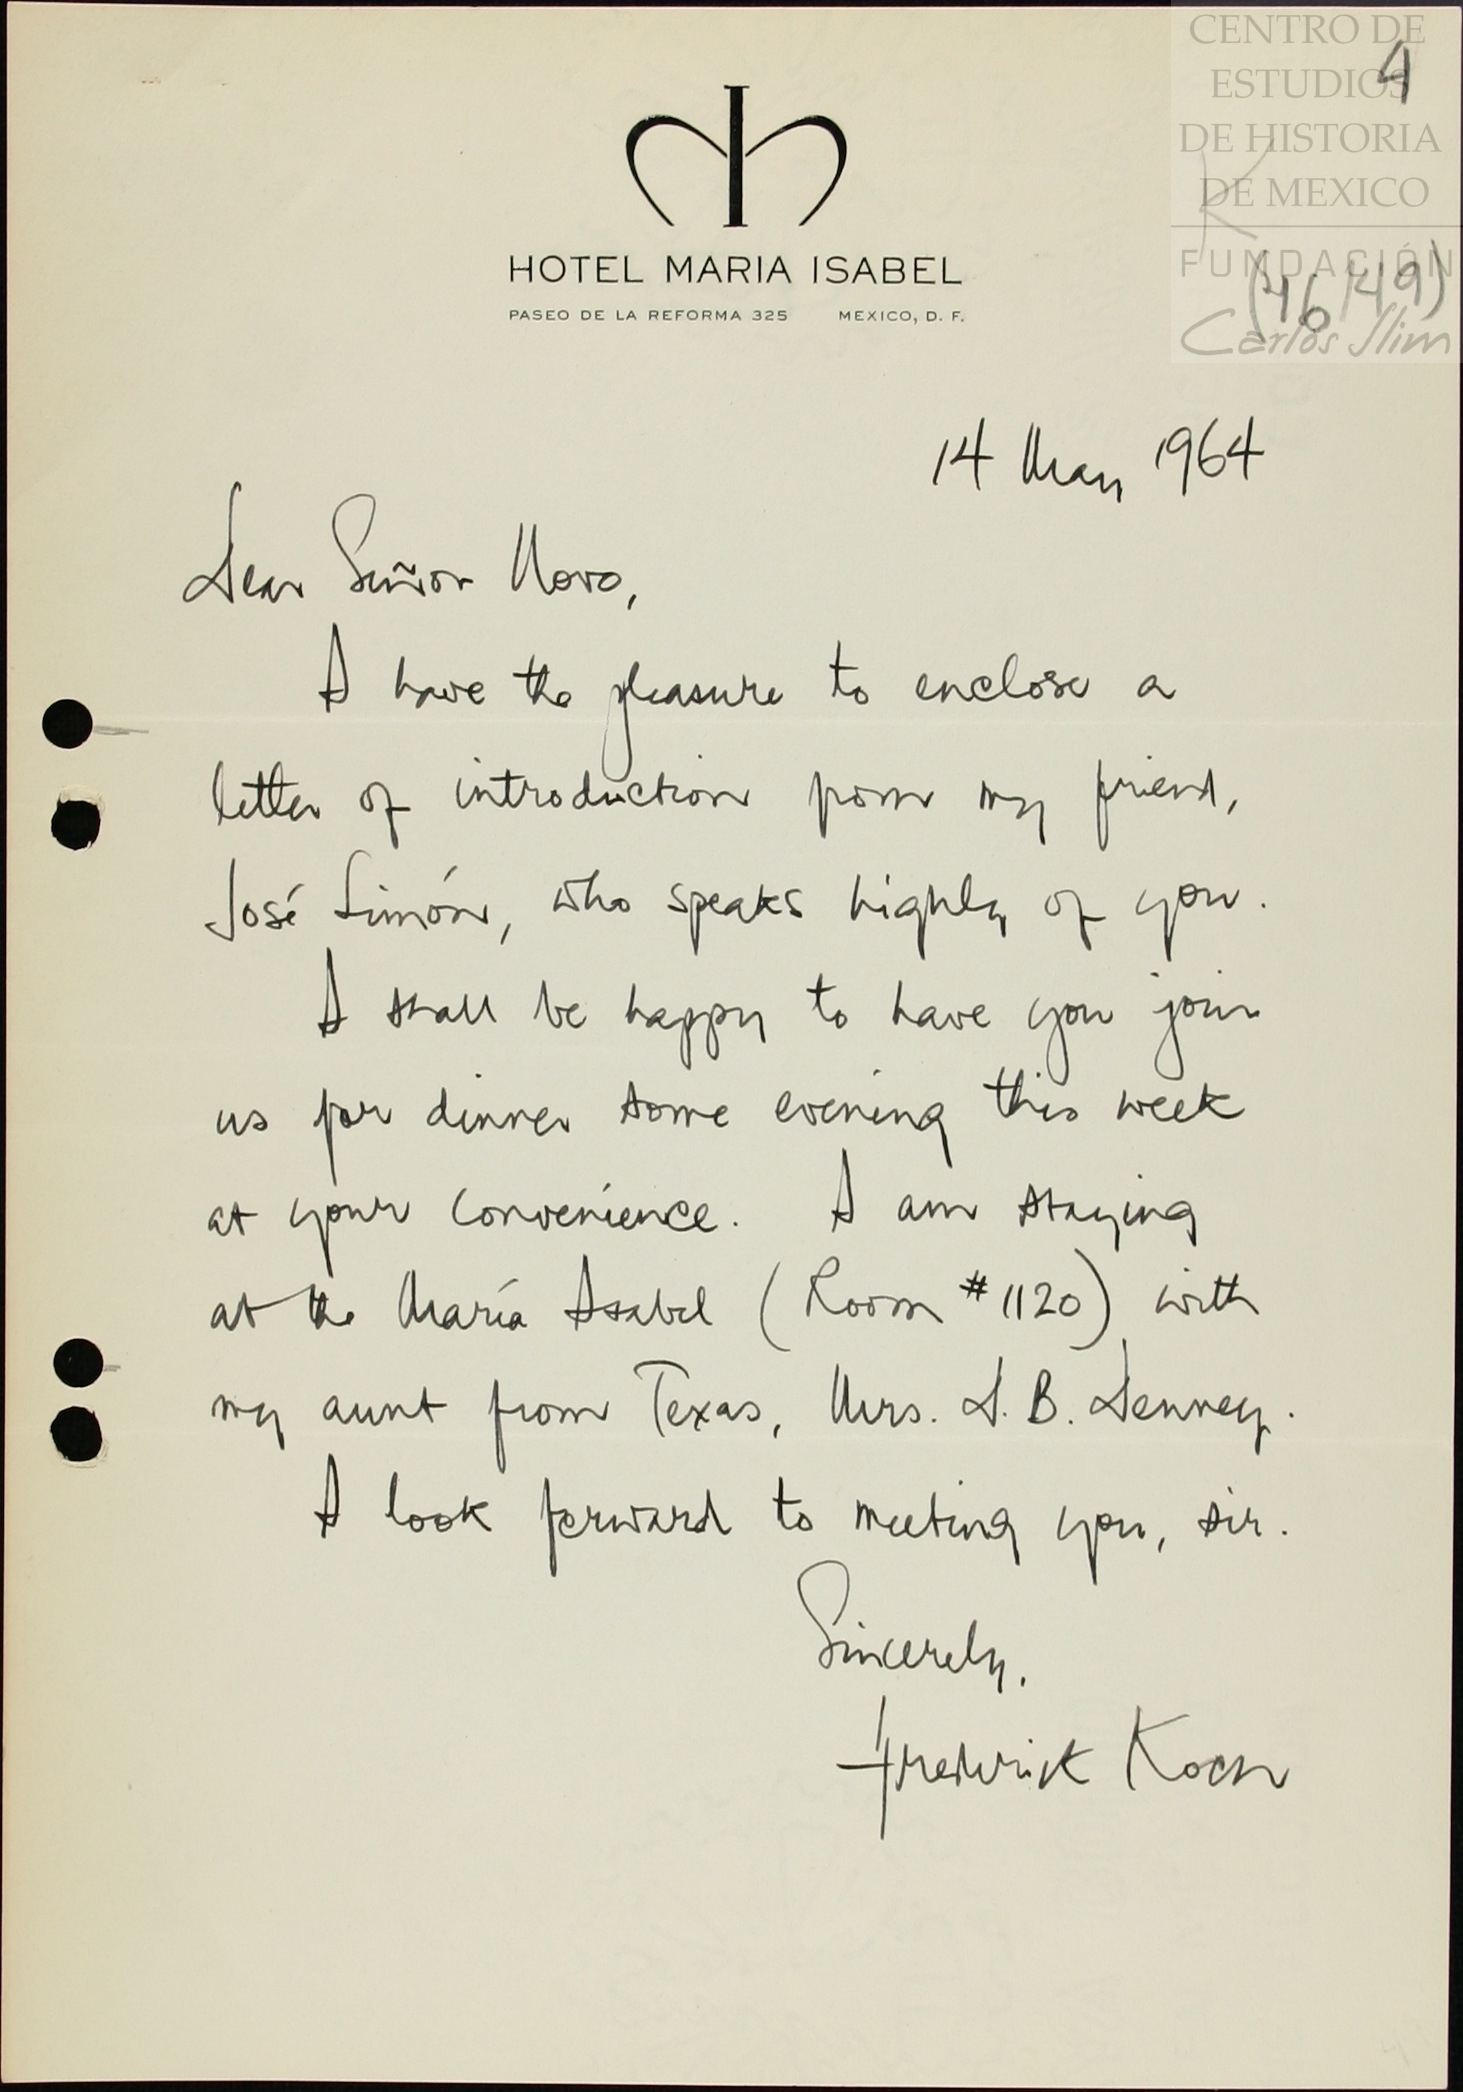 CENTRO DE
ESTUDIOS
DE HISTORIA
DE MEXICO
FUNDACIÓN
Carlos Slim
4
K
(46/49)
HOTEL MARIA ISABEL
PASEO DE LA REFORMA 325 MEXICO, D. F.
14 May 1964
Dear Señor Novo,
I have the pleasure to enclose a
letter of introduction from my friend,
José Limón, who speaks highly of you.
I shall be happy to have you join
us for dinner some evening this week
at your convenience. I am staying
at the María Isabel (Room #1120) with
my aunt from Texas, Mrs. D. B. Denney.
I look forward to meeting you, sir.
Sincerely,
Frederick Koch